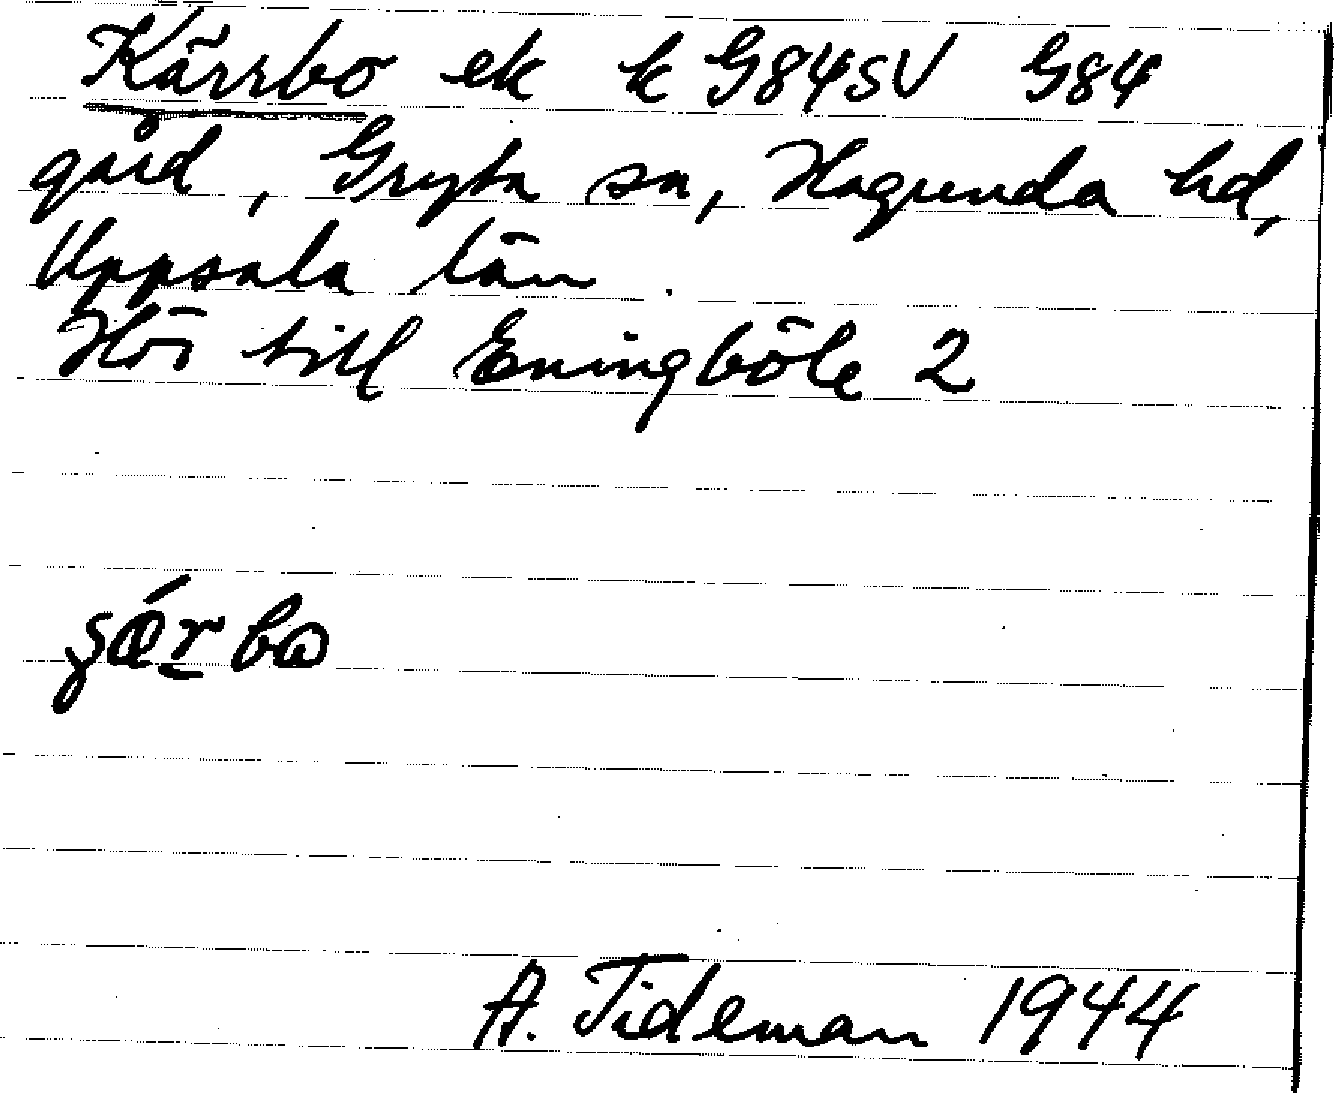 Kärrbo ek k G84SV G84
gård, Gryta sn, Hagunda hd,
Uppsala län.
Hör till Eningböle 2
A. Tideman 1944